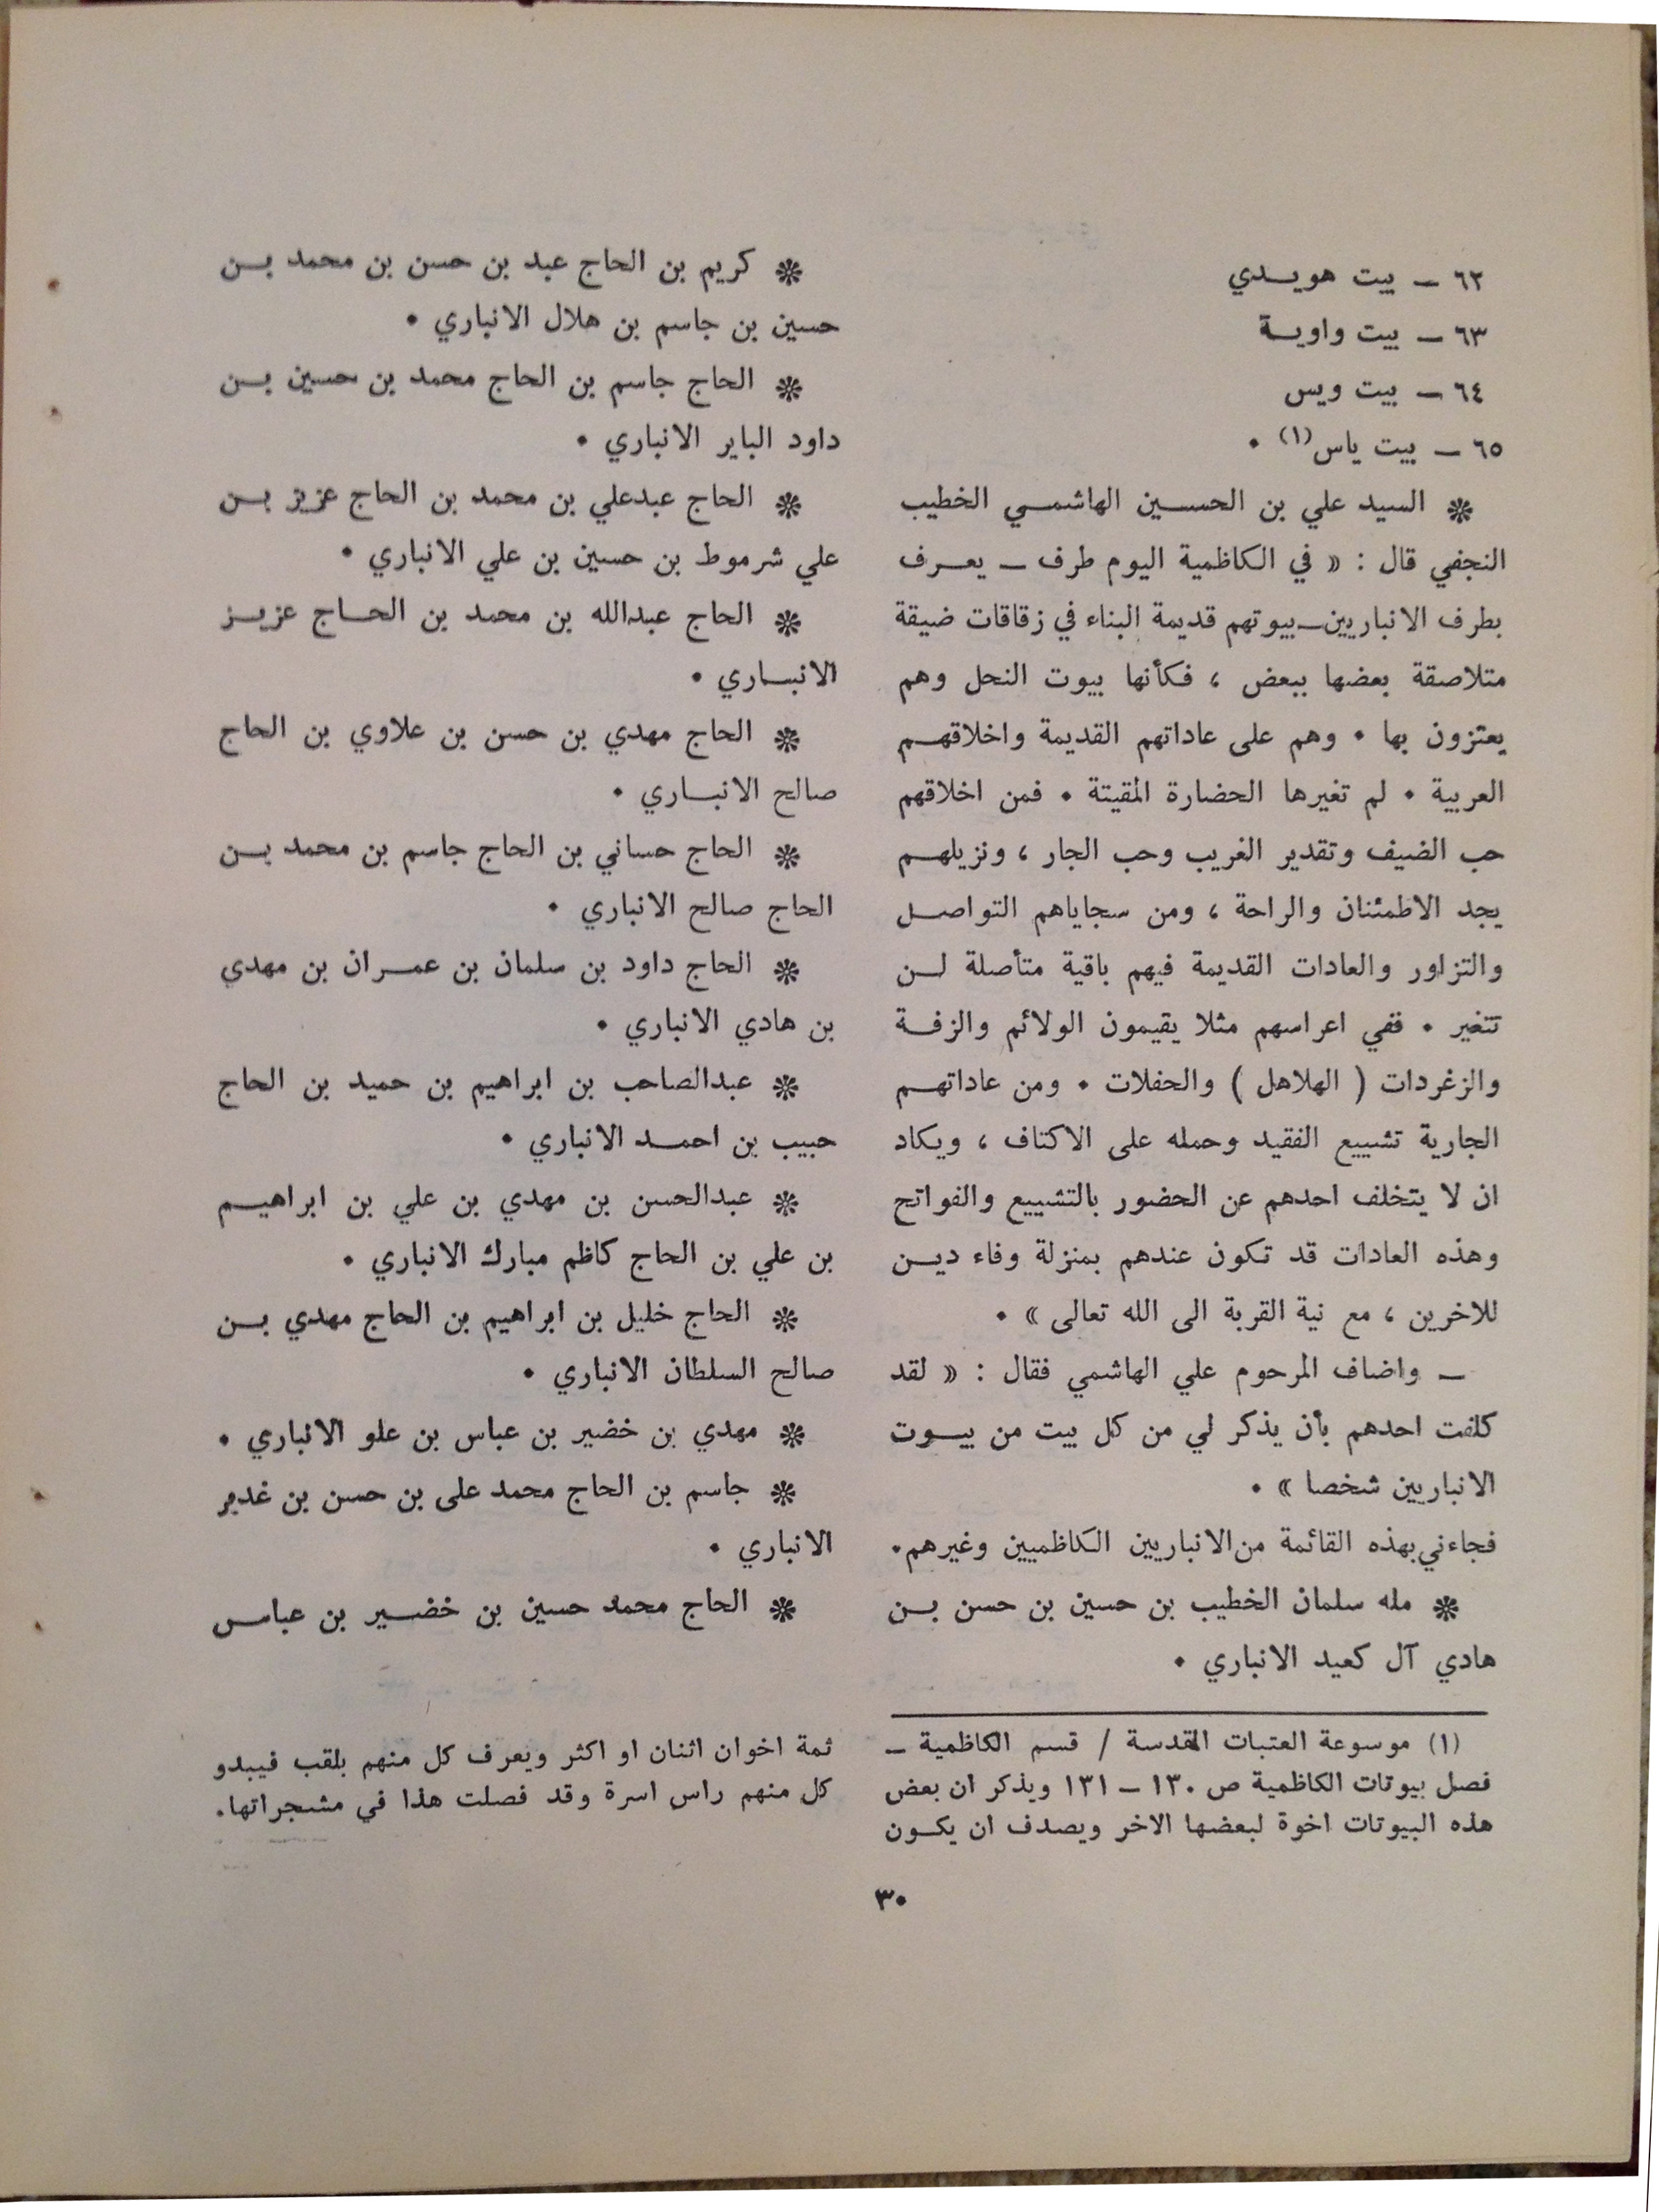 ٦٢ ــ بيت هويـــدي
٦٣ ــ بيت واويـــة
٦٤ ــ بيت ويس
٦٥ ــ بيت ياس(١) .
❊ السيد علي بن الحســـين الهاشمـــي الخطيب
النجفي قال : « في الكاظمية اليوم طرف ــ يعـــرف
بطرف الانباريين ــ بيوتهم قديمة البناء في زقاقات ضيقة
متلاصقة بعضها ببعض ، فكأنها بيوت النحل وهم
يعتزون بها . وهم على عاداتهم القديمة واخلاقهـــم
العربية . لم تغيرها الحضارة المقيتة . فمن اخلاقهم
حب الضيف وتقدير الغريب وحب الجار ، ونزيلهـــم
يجد الاطمئنان والراحة ، ومن سجاياهم التواصـــل
والتزاور والعادات القديمة فيهم باقية متأصلة لـــن
تتغير . ففي اعراسهم مثلا يقيمون الولائم والزفـــة
والزغردات ( الهلاهل ) والحفلات . ومن عاداتهـــم
الجارية تشييع الفقيد وحمله على الاكتاف ، ويكاد
ان لا يتخلف احدهم عن الحضور بالتشييع والفواتح
وهذه العادات قد تكون عندهم بمنزلة وفاء ديـــن
للاخرين ، مع نية القربة الى الله تعالى » .
ــ واضاف المرحوم علي الهاشمي فقال : « لقد
كلفت احدهم بأن يذكر لي من كل بيت من بيـــوت
الانباريين شخصا » .
فجاءني بهذه القائمة من الانباريين الكاظميين وغيرهم.
❊ مله سلمان الخطيب بن حسين بن حسن بـــن
هادي آل كعيد الانباري .
❊ كريم بن الحاج عبد بن حسن بن محمد بـــن
حسين بن جاسم بن هلال الانباري .
❊ الحاج جاسم بن الحاج محمد بن حسين بـــن
داود الباير الانباري .
❊ الحاج عبدعلي بن محمد بن الحاج عزيز بـــن
علي شرموط بن حسين بن علي الانباري .
❊ الحاج عبدالله بن محمد بن الحـــاج عزيـــز
الانبـــاري .
❊ الحاج مهدي بن حسن بن علاوي بن الحاج
صالح الانبـــاري .
❊ الحاج حساني بن الحاج جاسم بن محمد بـــن
الحاج صالح الانباري .
❊ الحاج داود بن سلمان بن عمـــران بن مهدي
بن هادي الانباري .
❊ عبدالصاحب بن ابراهيم بن حميد بن الحاج
حبيب بن احمـــد الانباري .
❊ عبدالحسن بن مهدي بن علي بن ابراهيـــم
بن علي بن الحاج كاظم مبارك الانباري .
❊ الحاج خليل بن ابراهيم بن الحاج مهدي بـــن
صالح السلطان الانباري .
❊ مهدي بن خضير بن عباس بن علو الانباري .
❊ جاسم بن الحاج محمد على بن حسن بن غدير
الانباري .
❊ الحاج محمد حسين بن خضـــير بن عباس
(١) موسوعة العتبات المقدسة / قسم الكاظمية ــ
فصل بيوتات الكاظمية ص ١٣٠ ــ ١٣١ ويذكر ان بعض
هذه البيوتات اخوة لبعضها الاخر ويصدف ان يكـــون
ثمة اخوان اثنان او اكثر ويعرف كل منهم بلقب فيبدو
كل منهم راس اسرة وقد فصلت هذا في مشجراتها.
٣٠